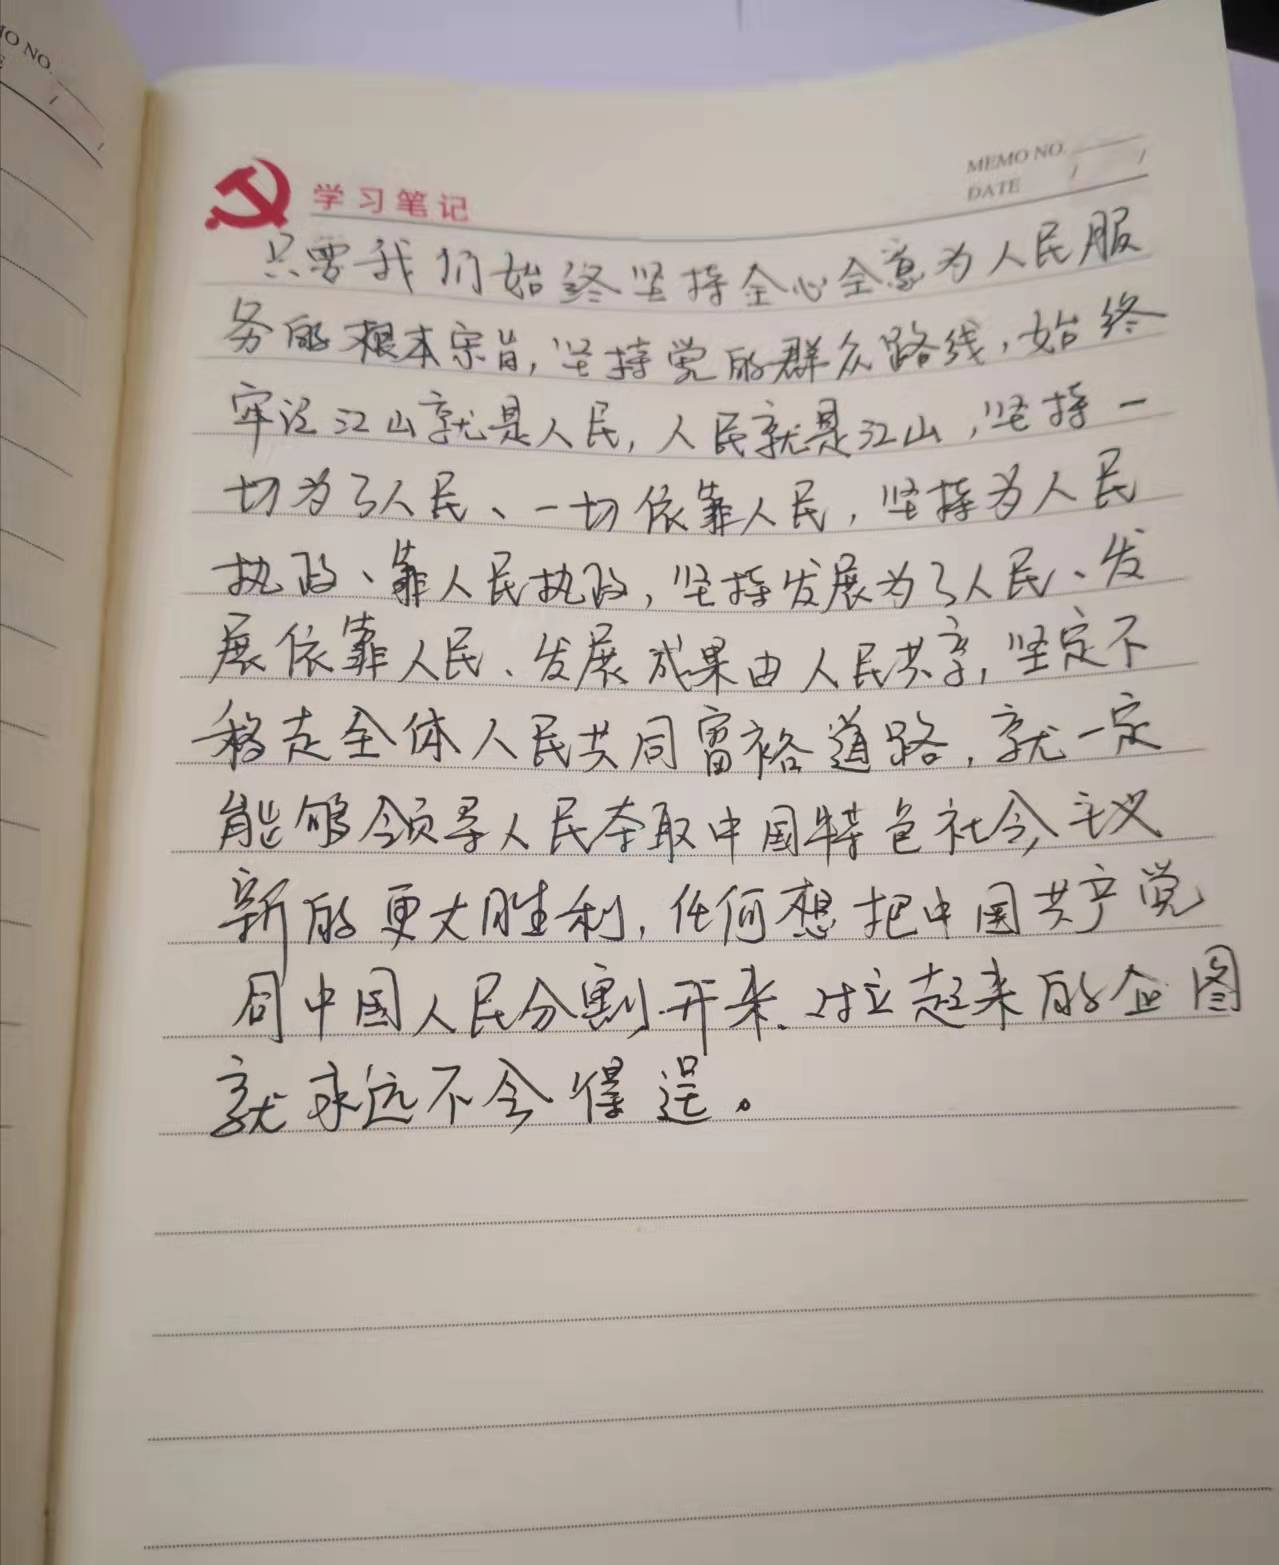 O NO.
MEMO NO.
DATE / /
学习笔记
只要我们始终坚持全心全意为人民服
务的根本宗旨，坚持党的群众路线，始终
牢记江山就是人民，人民就是江山，坚持一
切为了人民、一切依靠人民，坚持为人民
执政、靠人民执政，坚持发展为了人民、发
展依靠人民、发展成果由人民共享，坚定不
移走全体人民共同富裕道路，就一定
能够领导人民夺取中国特色社会主义
新的更大胜利，任何想把中国共产党
同中国人民分割开来、对立起来的企图
就永远不会得逞。